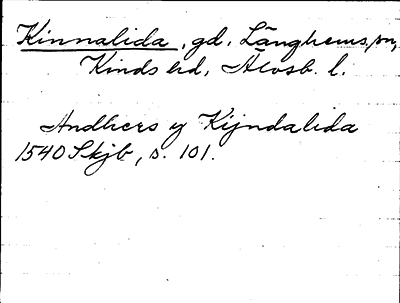 Kinnalida, gd, Länghems sn,
Kinds hd, Älvsb. l.
Andhers y Kijndalida
1540 Skjb, s. 101.